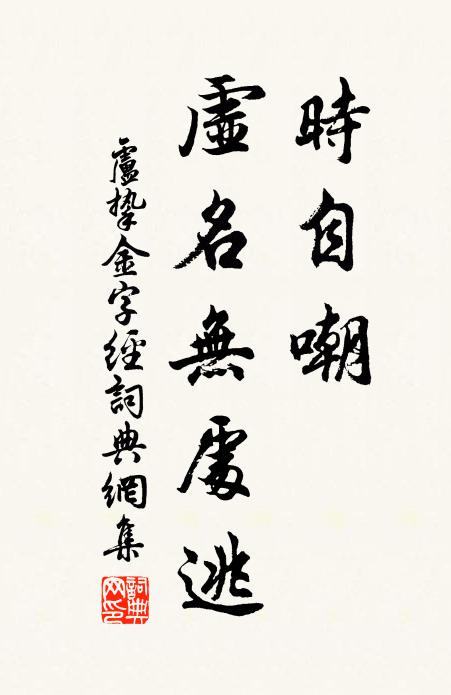 時自嘲
虛名無處逃
盧摯金字經詞典網集
詞典网印